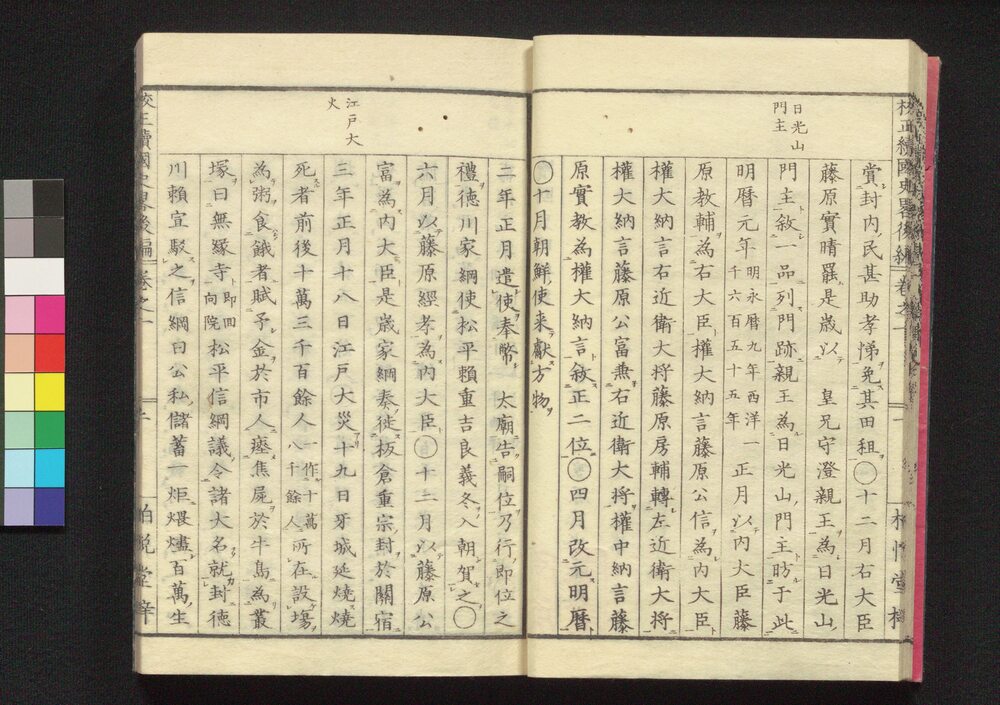 日光山
門主
賞封内民甚助孝悌免其田租〇十二月右大臣
藤原實晴罷是歳以 皇兄守澄親王為日光山
門主敘一品列門跡親王為日光山門主昉于此
明暦元年明永暦九年西洋一千六百五十五年正月以内大臣藤
原教輔為右大臣權大納言藤原公信為内大臣
權大納言右近衛大将藤原房輔轉左近衛大将
權大納言藤原公富兼右近衛大将權中納言藤
原實教為權大納言敘正二位〇四月改元明暦
〇十月朝鮮使来獻方物
江戸大
火
二年正月遣使奉幣 太廟告嗣位乃行即位之
禮徳川家綱使松平頼重吉良義冬入朝賀之〇
六月以藤原經孝為内大臣〇十二月以藤原公
富為内大臣是歳家綱奏徙板倉重宗封於關宿
三年正月十八日江戸大災十九日牙城延燒燒
死者前後十萬三千百餘人一作十萬八千餘人所在設場
為粥食餓者賦予金於市人瘞焦屍於牛島為叢
塚曰無縁寺即回向院松平信綱議令諸大名就封徳
川頼宣駁之信綱曰公私儲蓄一炬煨燼百萬生
校正續國史畧後編 卷之一